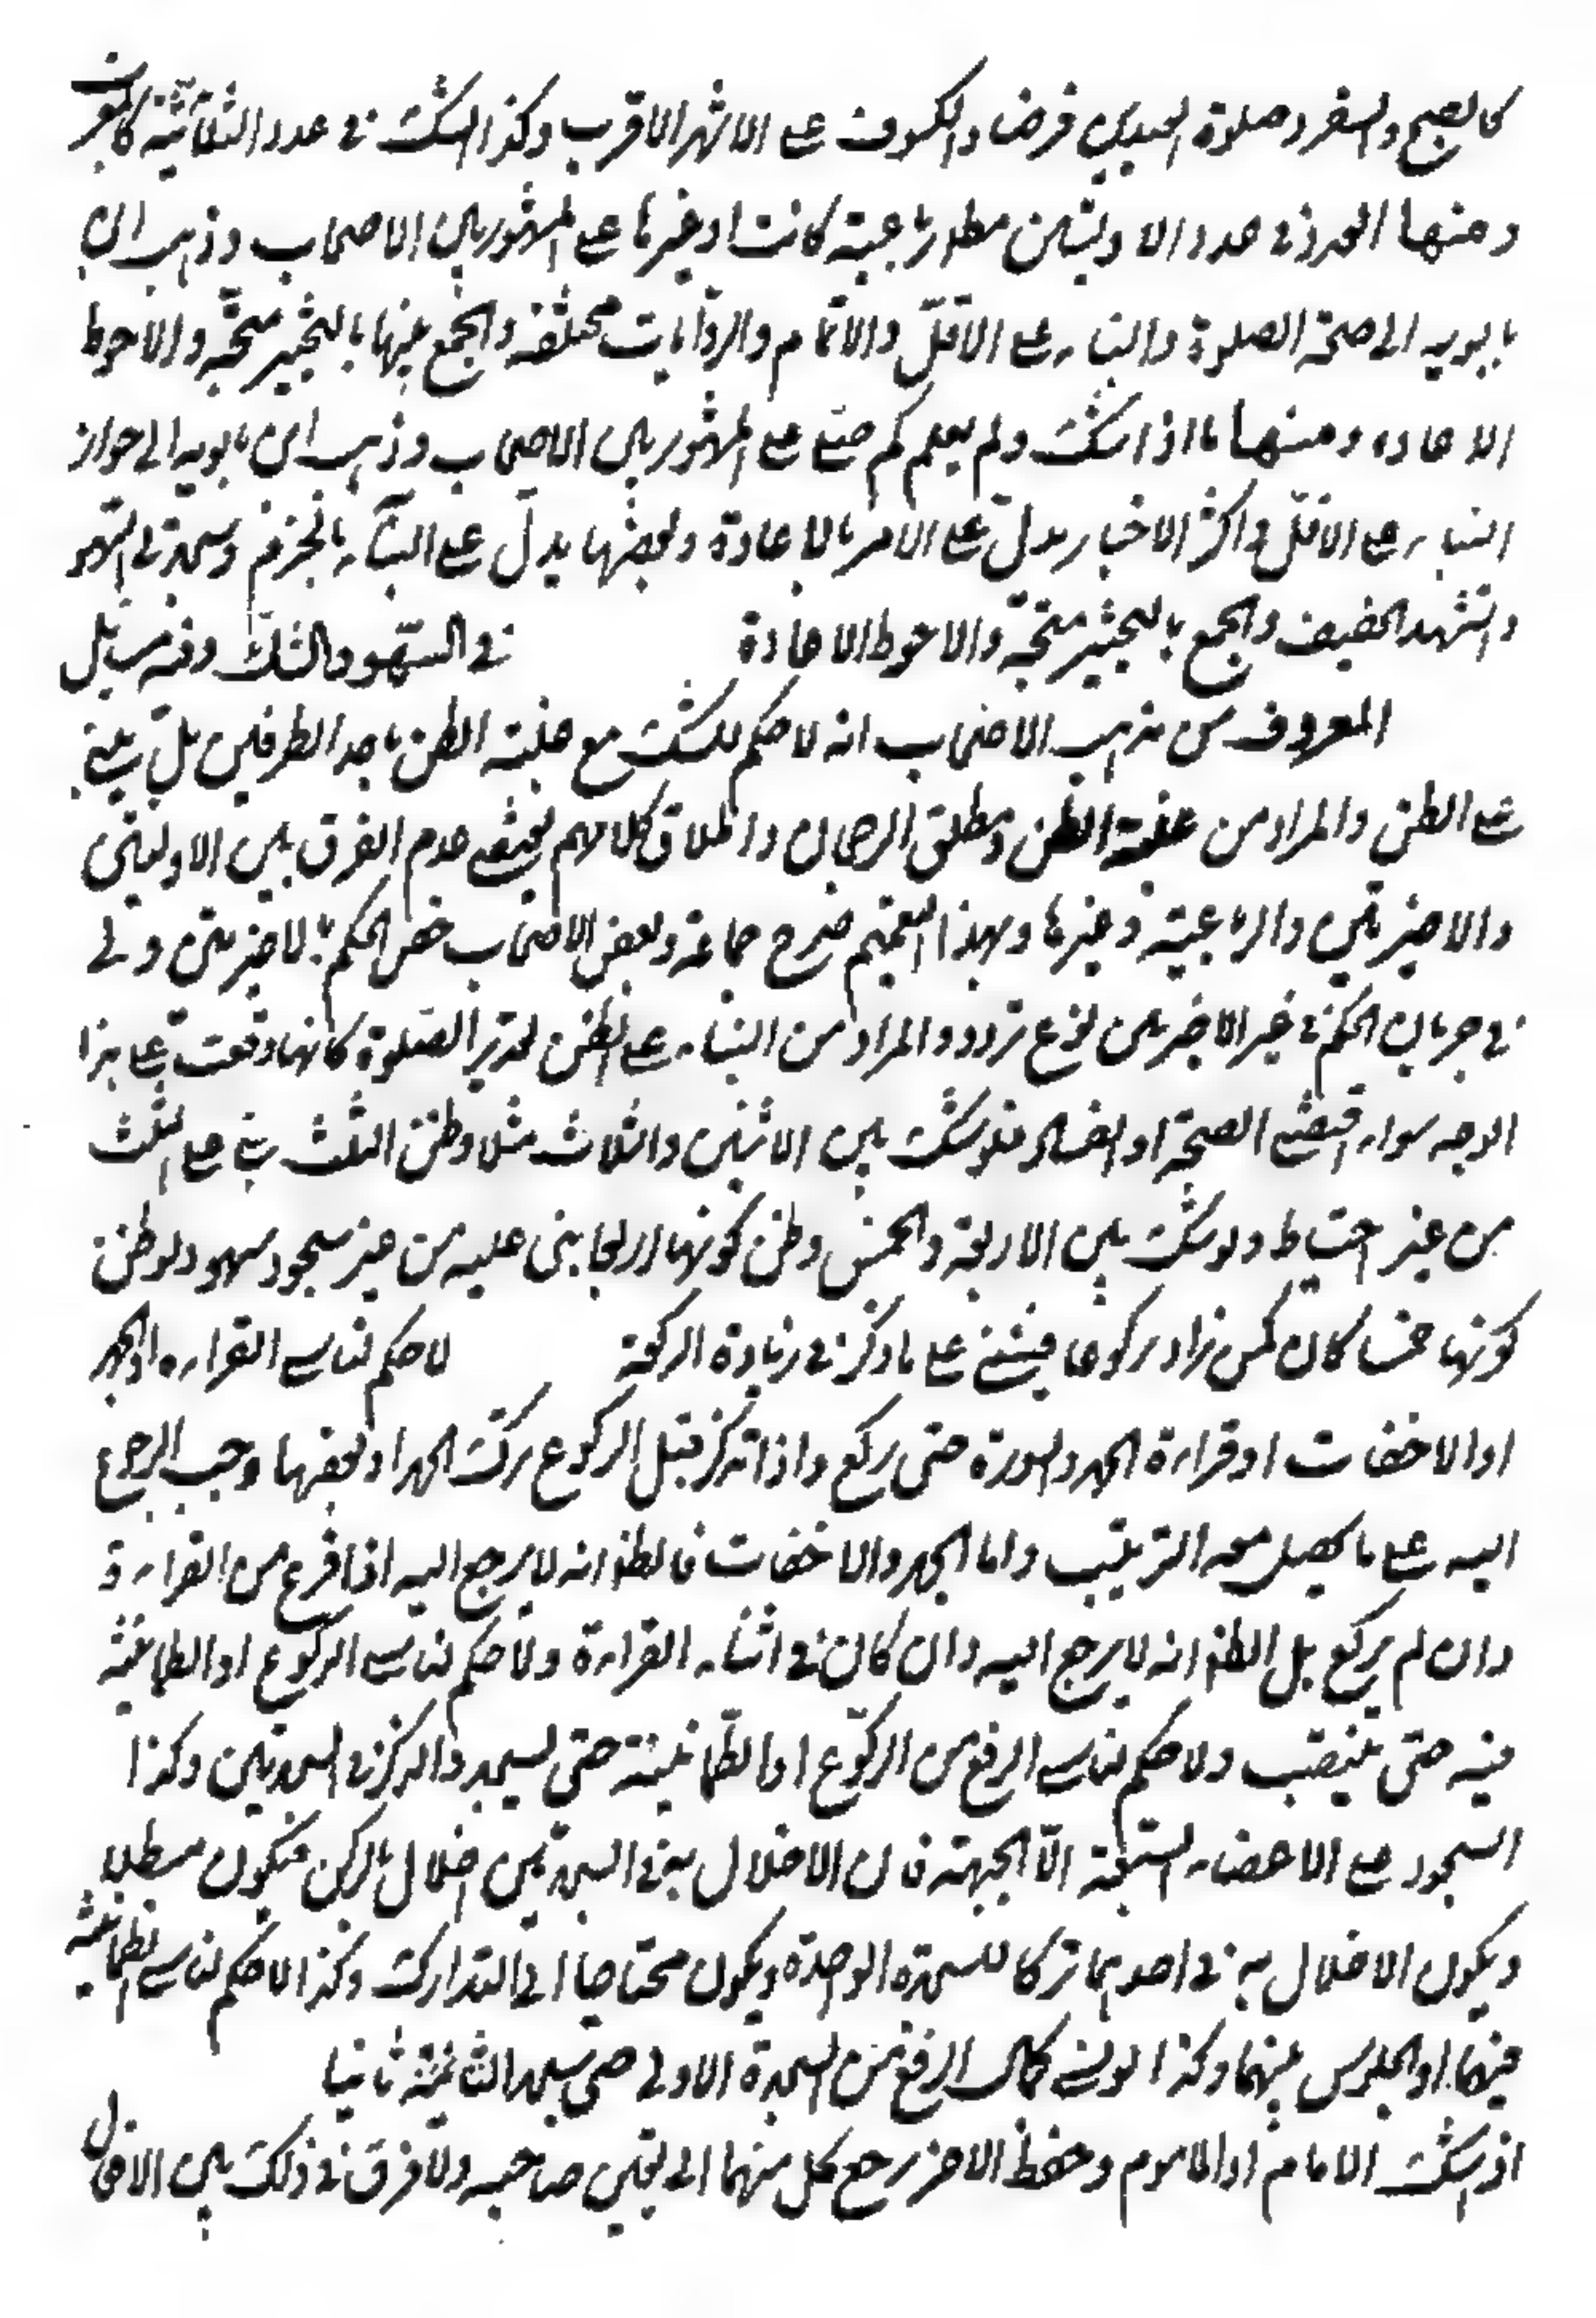 كالصبح والسفر وصلوة العيدين فرضا والكسوف على الاشهر الاقرب وكذا الشك في عدد الثلاثية كالمغرب
ومنها الشك في عدد الاوليتين مطلقا رباعية كانت او غيرها على المشهور بين الاصحاب وذهب ابن
بابويه الى صحة الصلوة والبناء على الاقلّ والاتمام والروايات مختلفة والجمع بينها بالتخيير متجه والاحوط
الاعادة ومنها ما اذا شك ولم يعلم كم صلى على المشهور بين الاصحاب وذهب ابن بابويه الى جواز
البناء على الاقلّ واكثر الاخبار يدل على الامر بالاعادة وبعضها يدل على البناء بالجزم وسجدتي السهو
والتشهد الخفيف والجمع بالتخيير متجه والاحوط الاعادة في السهو والشك وفيه مسائل
المعروف من مذهب الاصحاب انه لا حكم للشك مع غلبة الظن باحد الطرفين بل يبنى
على الظن والمراد من غلبة الظن مطلق الرجحان واطلاق كلامهم يقتضي عدم الفرق بين الاوليتين
والاخيرتين والرباعية وغيرها وبهذا التعميم صرح جماعة وبعض الاصحاب خص الحكم بالاخيرتين ولي
في جريان الحكم في غير الاخيرتين نوع تردد والمراد من البناء على الظن تقدير الصلوة كانها وقعت على هذا
الوجه سواء اقتضى الصحة او الفساد فلو شك بين الاثنين والثلاث مثلا وظن الثلث بنى على الثلث
من غير احتياط ولو شك بين الاربعة والخمس وظن كونها اربعا بنى عليه من غير سجود سهو ولو ظن
كونها خمسا كان كمن زاد ركوعا فيبنى على ما ذكر في زيادة الركعة لا حكم لناسي القراءة او الجهر
او الاخفات او قراءة الحمد والسورة حتى ركع واذا تذكر قبل الركوع ترك الحمد او بعضها وجب الرجوع
اليه على ما يحصل معه الترتيب واما الجهر والاخفات فالظ انه لا يرجع اليه اذا فرغ من القراءة
وان لم يركع بل الظ انه لا يرجع اليه وان كان في اثناء القراءة ولا حكم لناسي الركوع او الطمانينة
فيه حتى ينتصب ولا حكم لناسي الرفع من الركوع او الطمانينة حتى يسجد والذكر في السجدتين وكذا
السجود على الاعضاء السبعة الّا الجبهة فان الاخلال به في السجدتين اخلال بالركن فيكون مبطلا
ويكون الاخلال به في احديهما تركا للسجدة الواحدة ويكون محتاجا الى التدارك وكذا لا حكم لناسي الطمانينة
فيهما او الجلوس بينهما وكذا لو نسي كمال الرفع من السجدة الاولى حتى سجد الثانية ثانيا
اذا شك الامام او الماموم وحفظ الاخر رجع كل منهما الى يقين صاحبه ولا فرق في ذلك بين الافعال